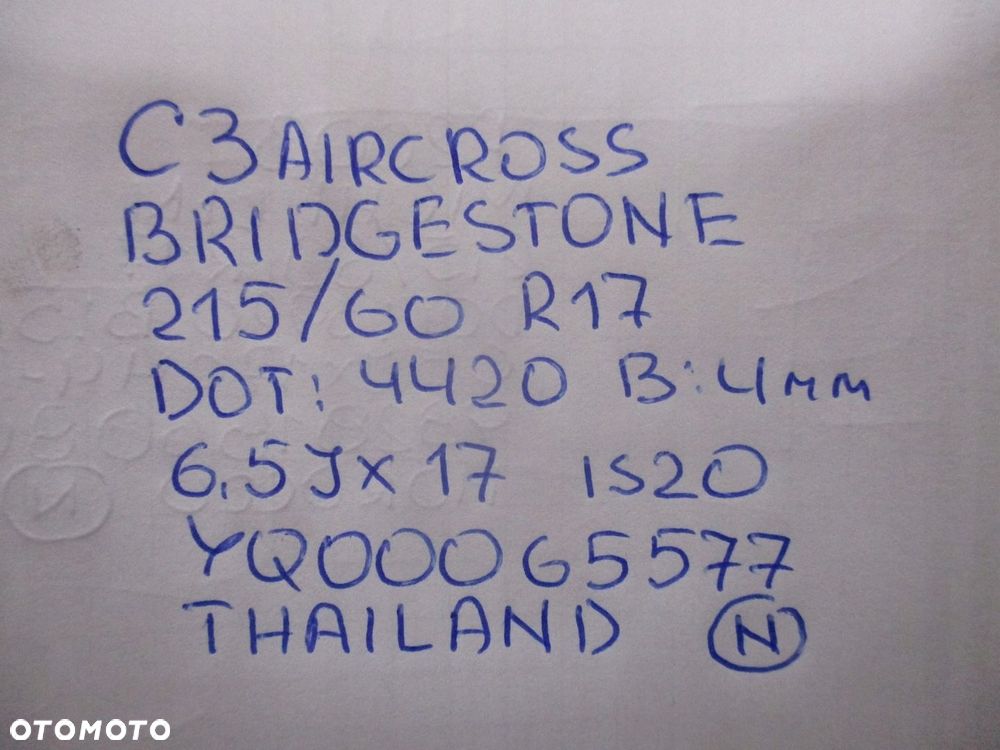 C3 AIRCROSS
BRIDGESTONE
215/60 R17
DOT: 4420 B:4mm
6,5Jx17 IS20
YQ00065577
THAILAND N
OTOMOTO